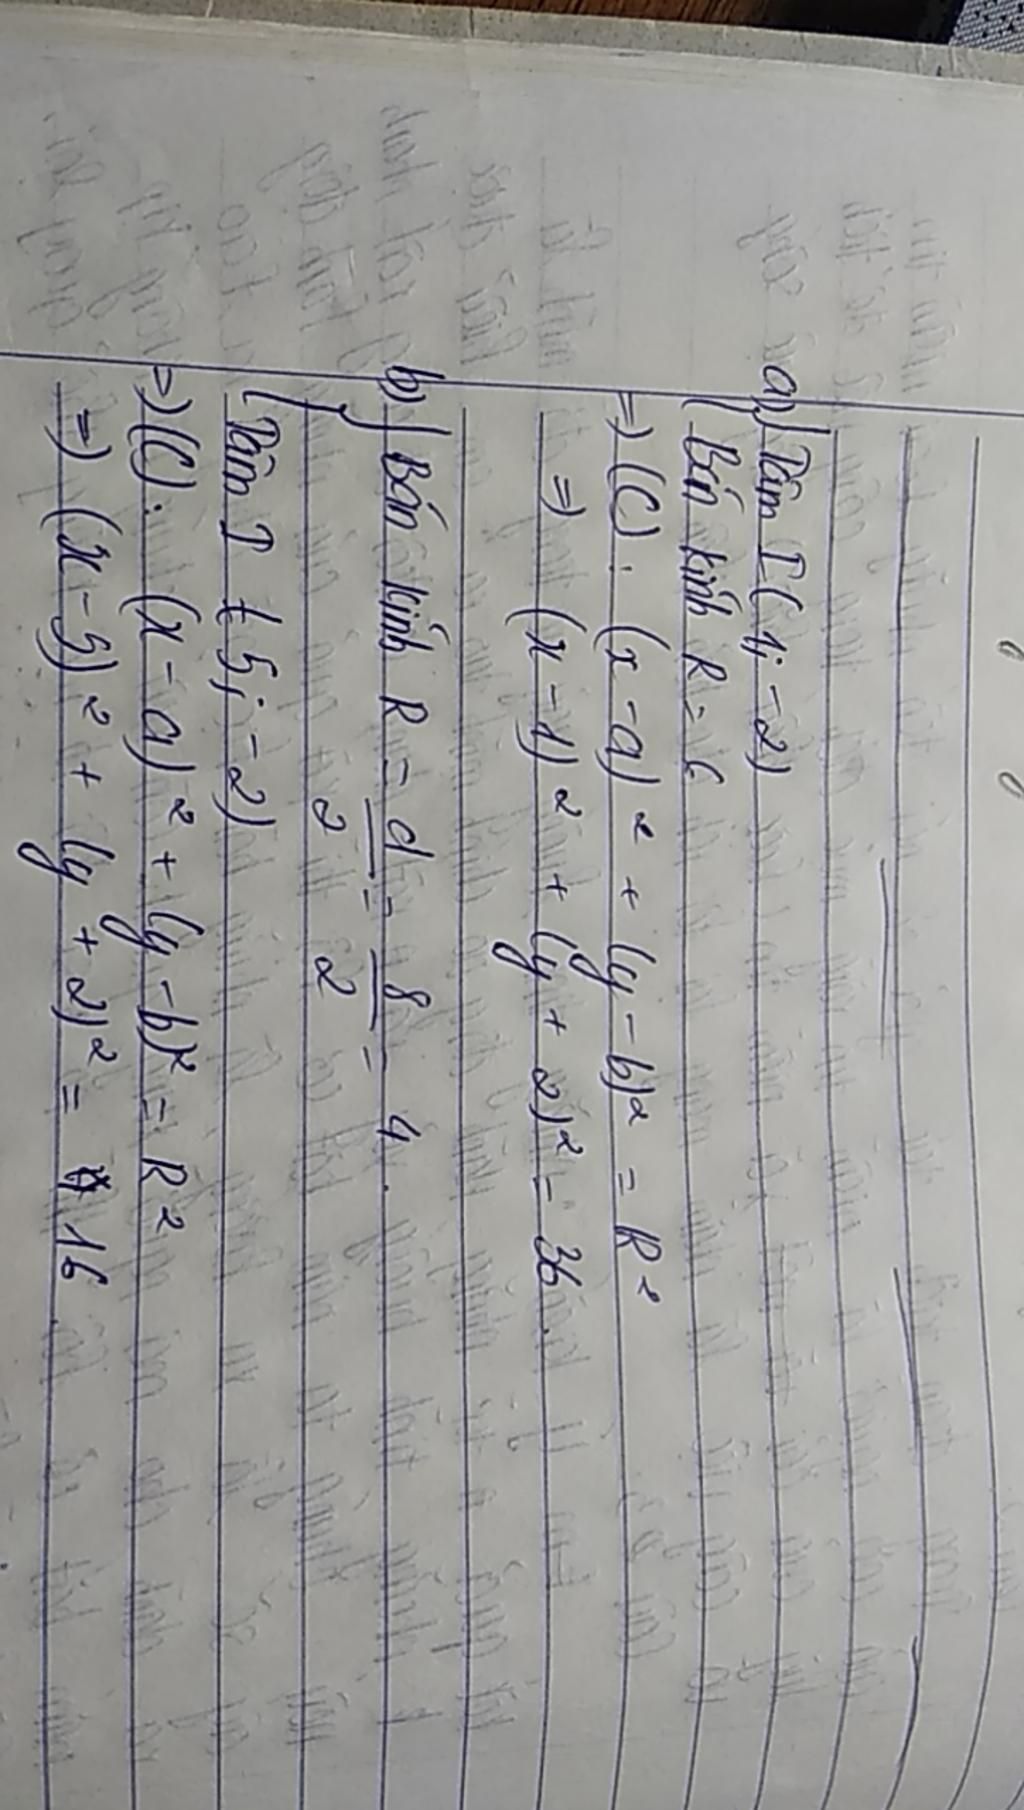 a) Tâm I (1; -2)
Bán kính R = 6
=> (C): (x - a)² + (y - b)² = R²
=> (x - 1)² + (y + 2)² = 36
b) Bán kính R = d/2 = 8/2 = 4.
Tâm I (5; -2)
=> (C): (x - a)² + (y - b)² = R²
=> (x - 5)² + (y + 2)² = 16